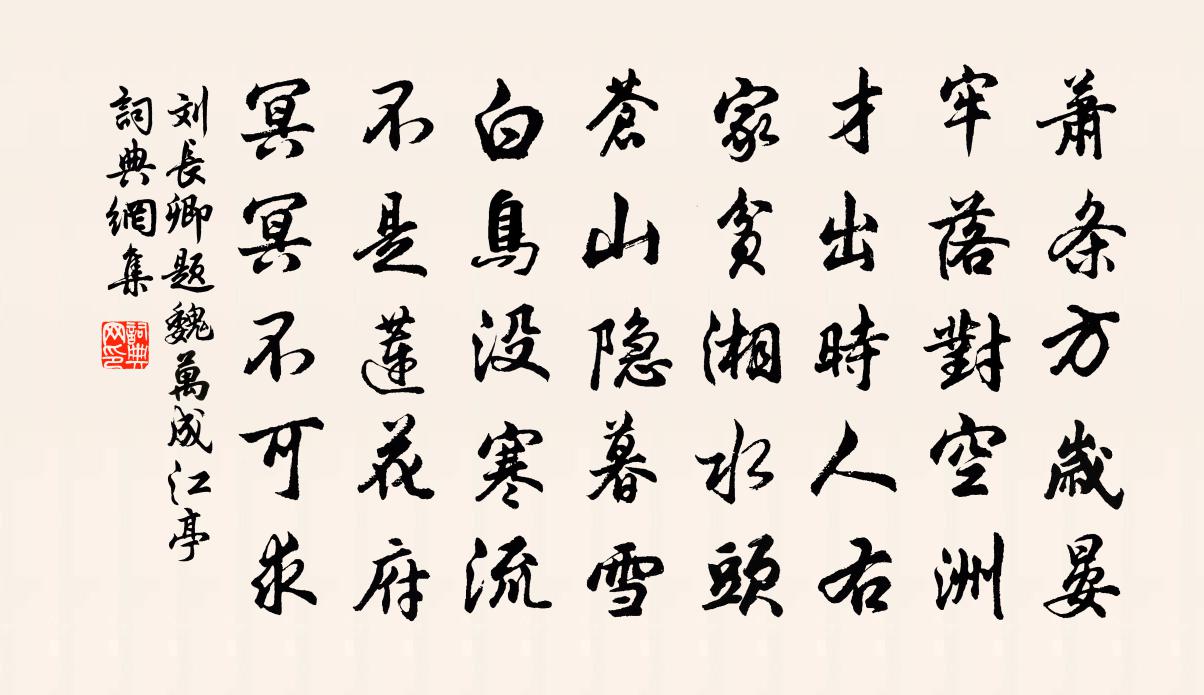 蕭条方歲晏
牢落對空洲
才出時人右
家貧湘水頭
蒼山隐暮雪
白鳥没寒流
不是蓮花府
冥冥不可求
刘長卿题魏萬成江亭
詞典網集
詞典网印